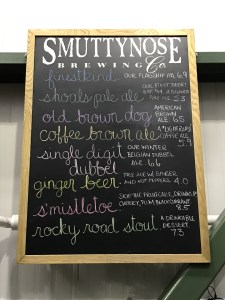 SMUTTYNOSE
BREWING Co.
finestkind OUR FLAGSHIP IPA 6.9
OUR FIRST BEER!
shoals pale ale 5.3
AMERICAN
old brown dog BROWN
ALE 6.5
coffee brown ale COFFEE ALE
5.9
single digit OUR WINTER
dubbel BELGIAN DUBBEL
ALE 6.6
ginger beer. ALE W/ GINGER
AND HOT PEPPERS 4.0
s'mistletoe
CHERRY, PLUM, BLACKCURRANT
8.5
rocky road stout A DRINKABLE
DESSERT
7.3